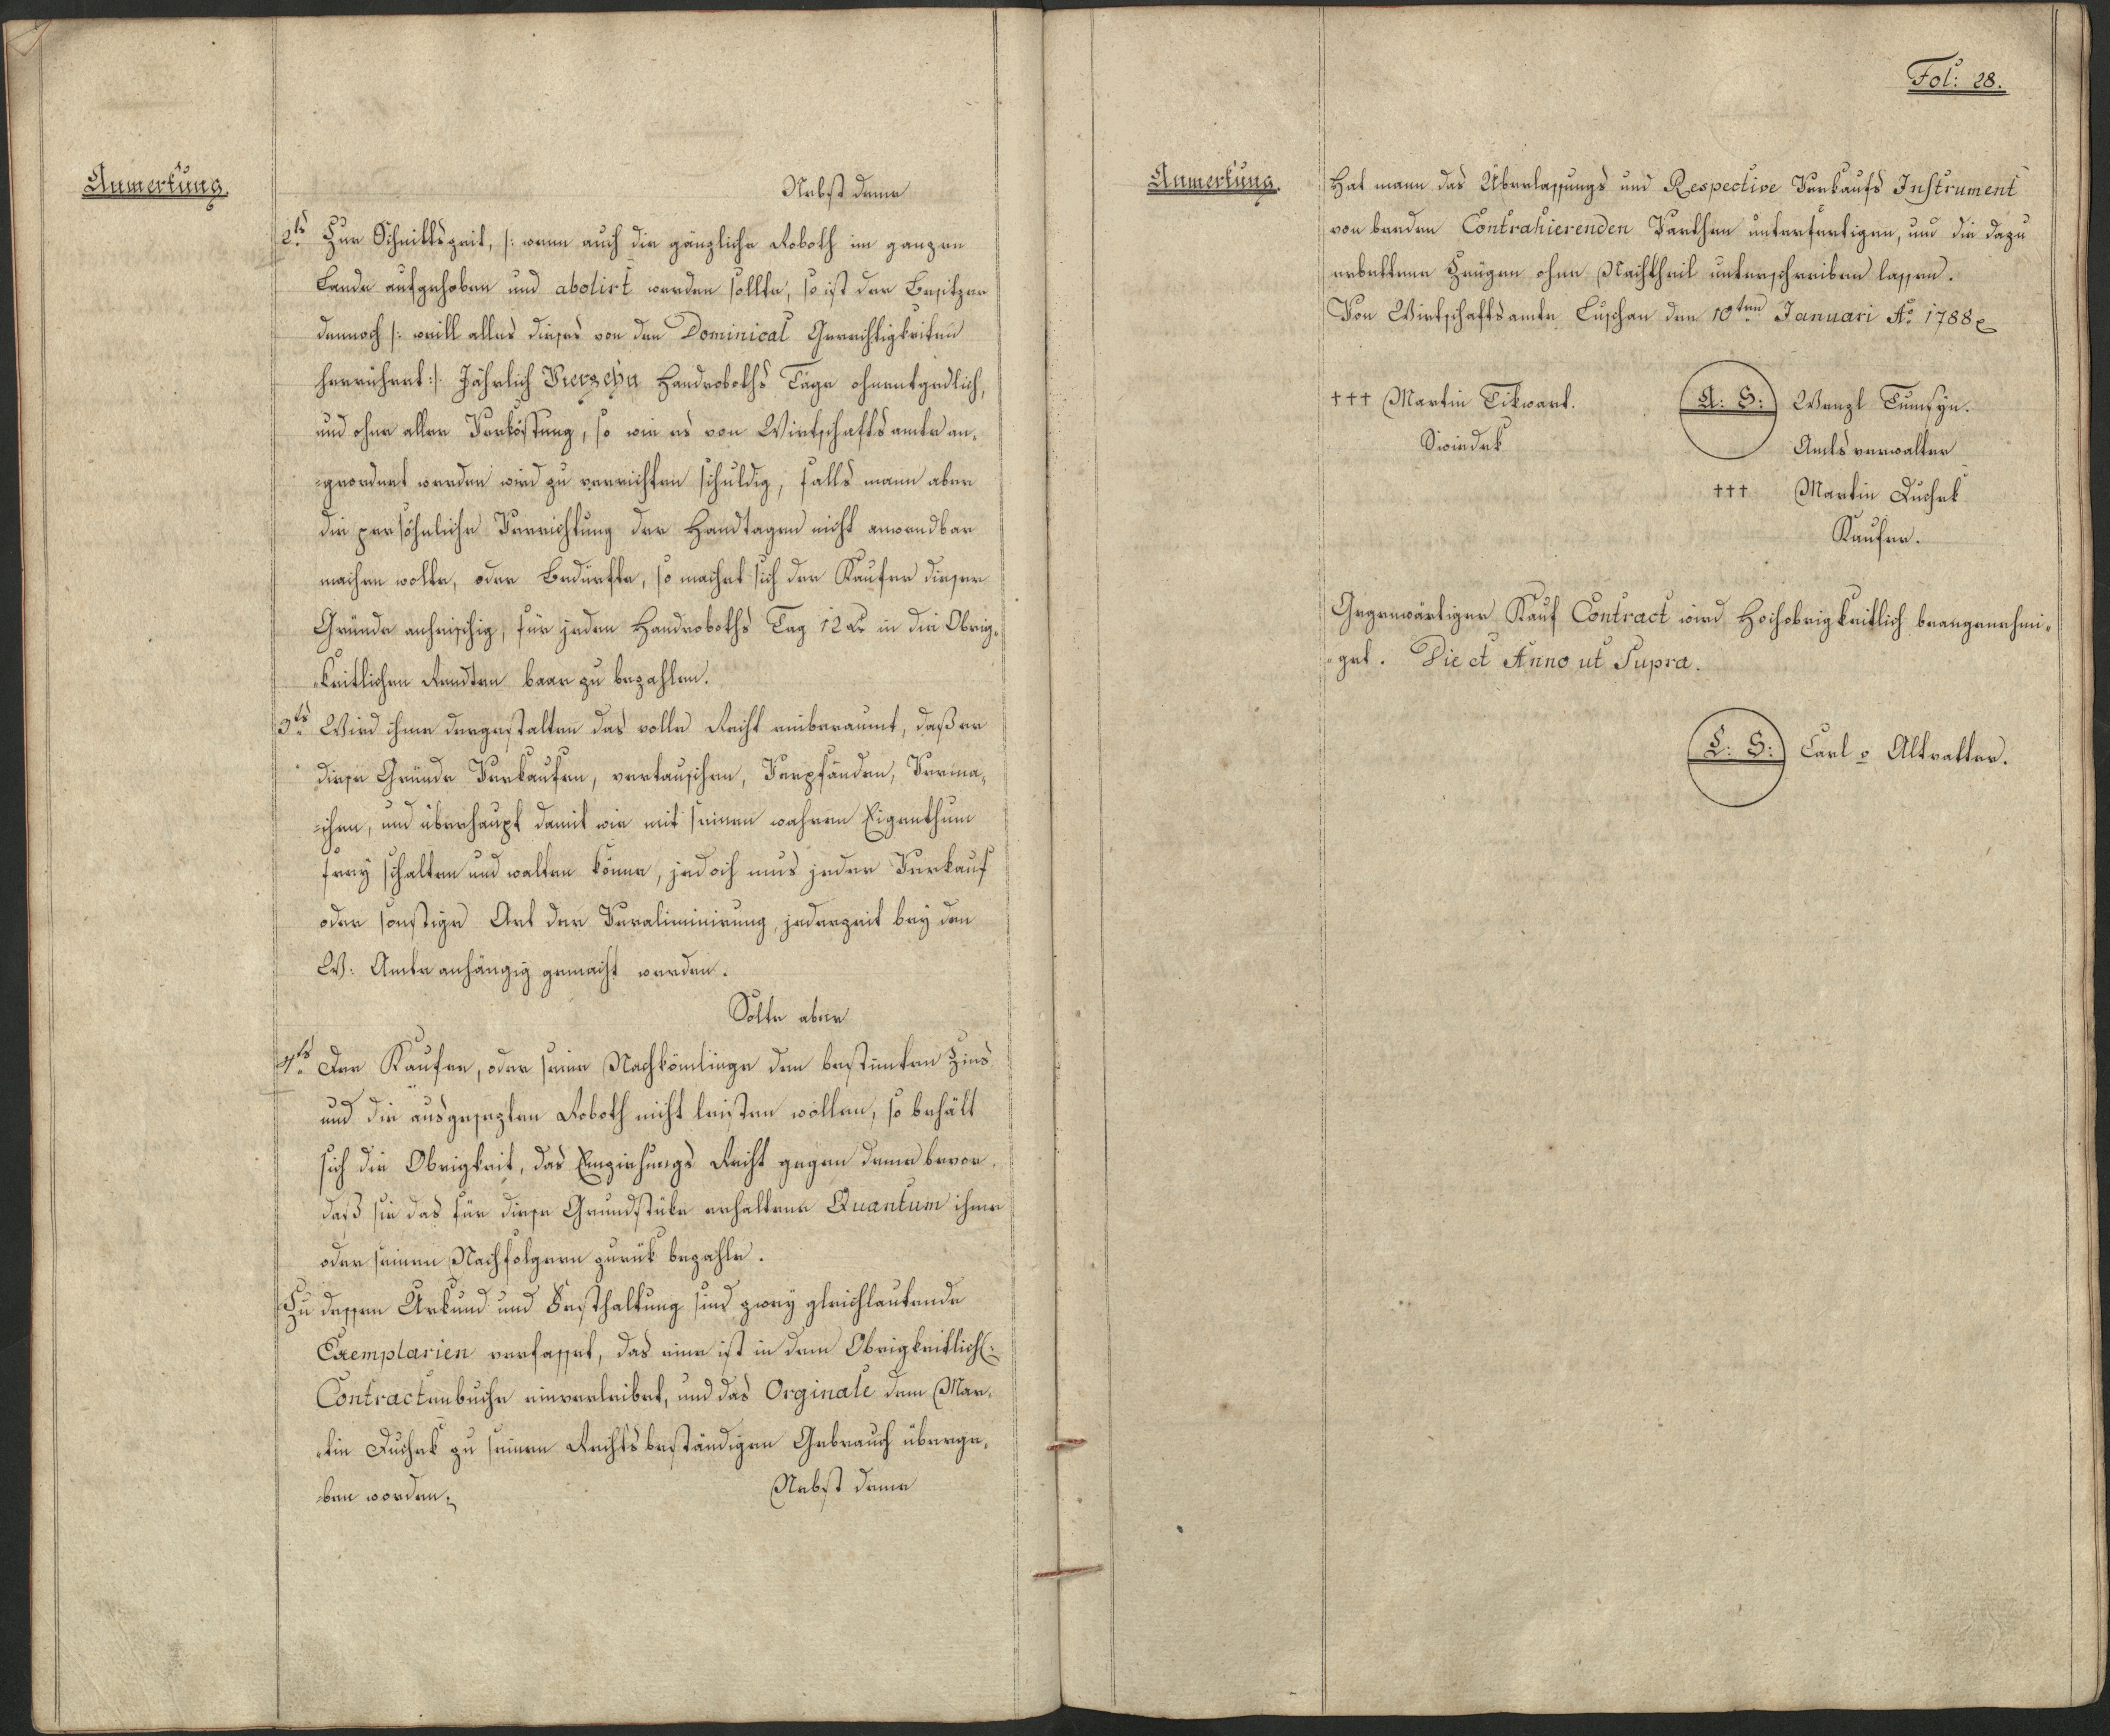 Anmerkung.
Nebst deme
2ts Zur Schnittszeit, /: wenn auch die gänzliche Roboth im ganzen
Lande aufgehoben und abolirt werden sollte, so ist der Besitzer
dennoch /: weill alles dieses von den Dominical Gerechtigkeiten
herrühret :/ Jährlich Vierzehn Handroboths Täge ohnentgedlich,
und ohne aller Verköstung, so wie es von Wirtschaftsamte an-
-geordnet werden wird zu verrichten schuldig, falls mann aber
die persöhnliche Verrichtung der Handtagen nicht anwendbar
machen wolte, oder Bedürfte, so machet sich der Kaufer dieser
Gründe anheischig, für jeden Handroboths Tag 12 xr in die Obrig-
-keitlichen Rendten baar zu bezahlen.
3ts Wird ihme dergestalten das volle Recht einberaumt, daß er
diese Gründe Verkaufen, vertauschen, Verpfänden, Verma-
-chen, und überhaupt damit wie mit seinen wahren Eigenthum
frey schalten und walten könne, jedoch mus jeder Verkauf
oder sonstige Art der Veraliminirung, jederzeit bey den
W: Amte anhängig gemacht werden.
Solte aber
4ts Der Kaufer, oder seine Nachkömlinge den bestimten Zins
und die ausgesezten Roboth nicht leisten wollen, so behält
sich die Obrigkeit, das Einziehungs Recht gegen deme bevor,
daß sie das für diese Grundstüke erhaltene Quantum ihme
oder seinen Nachfolgern zurük bezahle.
Zu dessen Urkund und Festhaltung sind zwey gleichlautende
Exemplarien verfasset, das eine ist in dem Obrigkeitlich(:
Contractenbuche einverleibet, und das Orginale dem Mar-
-tin Duchek zu seinen Rechtsbeständigen Gebrauch überge-
-ben worden.
Nebst deme
Fol: 28.
Anmerkung.
Hat mann das Überlassungs und Respective Verkaufs Instrument
von beeden Contrahierenden Parthen unterfertigen, und die dazu
erbettene Zeügen ohne Nachtheil unterschreiben lassen.
Von Wirtschaftsamte Luschan den 10ten Januari Ao 1788
+++ Martin Tikwart.
Swiedek
A: S: Wenzl Tumsÿn.
Amtsverwalter
+++ Martin Duchek
Kaufer.
Gegenwärtiger Kauf Contract wird Hochobrigkeitlich beangenehmi-
-get. Die et Anno ut Supra.
L: S: Carl v Altvatter.